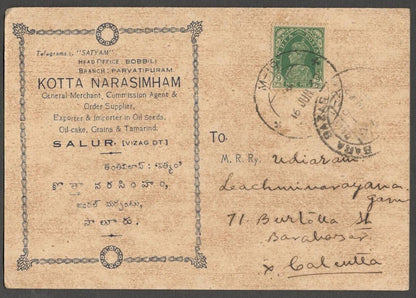 Telegrams: "SATYAM"
HEAD OFFICE: BOBBILI
BRANCH: PARVATIPURAM.
KOTTA NARASIMHAM
General Merchant, Commission Agent &
Order Supplier,
Exporter & Importer in Oil Seeds,
Oil-cake, Grains & Tamarind.
SALUR, [VIZAG DT]
తంతివిలాసం: "సత్యం"
కొత్తా నరసింహం,
జనరల్ మర్చంటు,
సాలూరు.
To.
M. R. Ry. Udairam
Lachminarayana
garu
71. Burtolla St
Barabazar
Calcutta